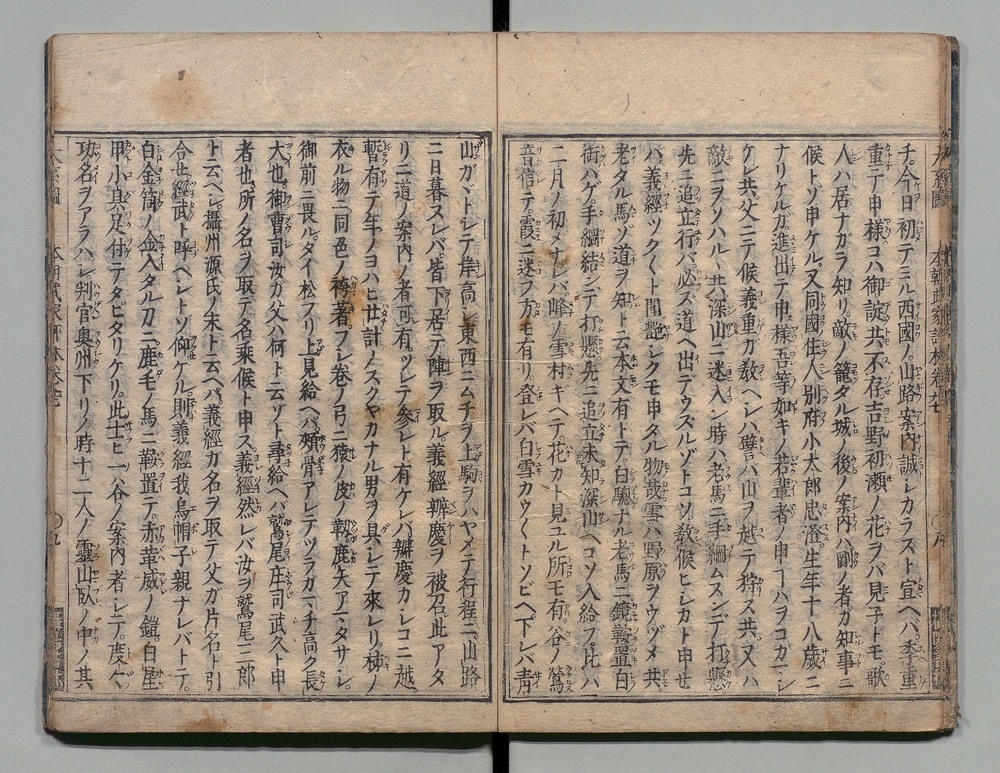 チ今日初テミル西國ノ山路案内誠シカラスト宣ヘバ季重
重テ申様コハ御諚共不存吉野初瀬ノ花ヲバ見子トモ歌
人ハ居ナガラ知リ敵ノ籠タル城ノ後ノ案内ハ剛ノ者カ知事ニ
候トゾ申ケル又同國住人別府小太郎忠澄生年十八歳ニ
ナリケルガ進出テ申様吾等如キノ若輩者ノ申丁ハヲコガマシ
ケレ共父ニテ候義重ガ敎ヘシハ譬ハ山ヲ越テ狩ス共又ハ
敵ニヲソハル共深山ニ迷入ン時ハ老馬ニ手綱ムスンデ打懸
先ニ追立行バ必ズ道ヘ出テウズルゾトコソ敎候ヒシカト申セ
バ義經ツクく ト聞艶シクモ申タル物哉雪ハ野原ヲウヅメ共
老タル馬ゾ道ヲ知ト云本文有トテ白驄ナル老馬ニ鏡鞍置白
銜ハゲ手綱結ンデ打懸先ニ追立未知深山ヘコソ入給フ比ハ
二月ノ初メナレバ峰ノ雪村ギヘテ花カト見ユル所モ有谷ノ鶯
音信テ霞ニ迷フ方モ有リ登レバ白雪カウく トソビヘ下レバ青
山ガヾトシテ岸高シ東西ニムチヲ上駒ヲハヤメテ行程ニ山路
ニ日暮ヌレバ皆下居テ陣ヲ取ル義經辨慶ヲ被召此アタ
リニ道ノ案内ノ者可有ツレテ參レト有ケレバ辨慶カシコニ越
暫有テ年ノヨハヒ廿計ノスクヤカナル男ヲ具シテ來レリ柿ノ
衣ル物ニ同色ノ袴著フシ卷ノ弓ニ猿ノ皮ノ靱鹿矢アマタサシ
御前ニ畏ルタイ松フリ上見給ヘバ頰骨アレテツラガマチ高ク長
大也御曹司汝ガ父ハ何ト云ゾト尋給ヘバ鷲尾庄司武久ト申
者也所ノ名ヲ取テ名乘候ト申ス義經然レバ汝ヲ鷲尾三郎
ト云ベシ攝州源氏ノ末ト云ヘバ義經ガ名ヲ取テ父ガ片名ト引
合セ經武ト呼ベシトゾ仰ケル則義經我烏帽子親ナレバトテ
白金筒ノ金入タル刀ニ鹿毛ノ馬ニ鞍置テ赤革威ノ鎧白星
甲小具足付テタビタリケリ此士ヒ一ノ谷ノ案内者シテ度々
功名ヲアラハシ判官奥州下リノ時十二人ノ靈山臥ノ中ノ其